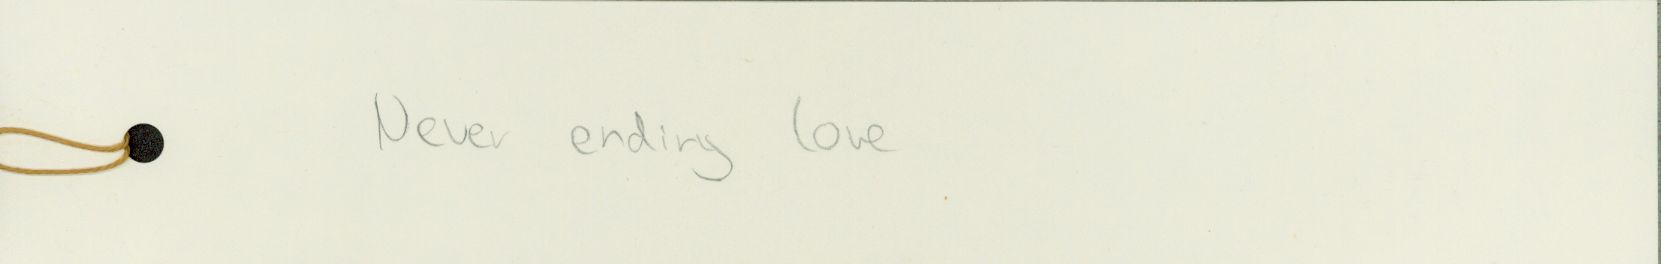 Never ending love